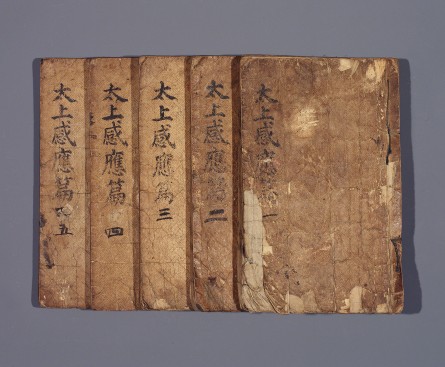 太上感應篇 一
太上感應篇 二
太上感應篇 三
太上感應篇 四
太上感應篇 五